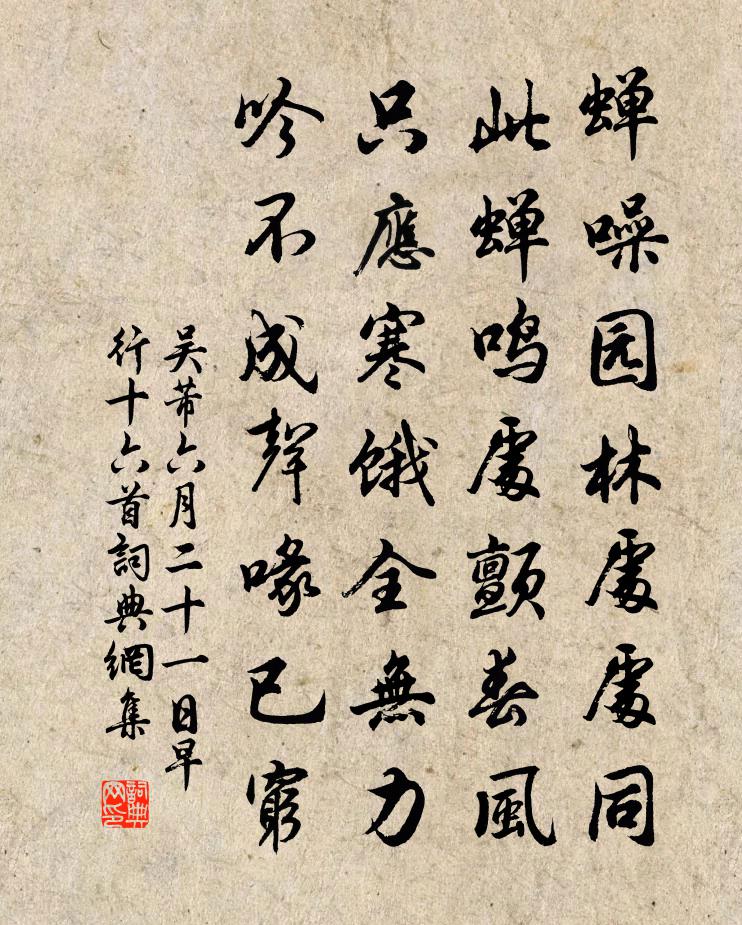 蝉噪园林處處同
此蝉鸣處顫春風
只應寒餓全無力
吟不成聲喙已窮
吴芾六月二十一日早
行十六首詞典網集
詞典
网印